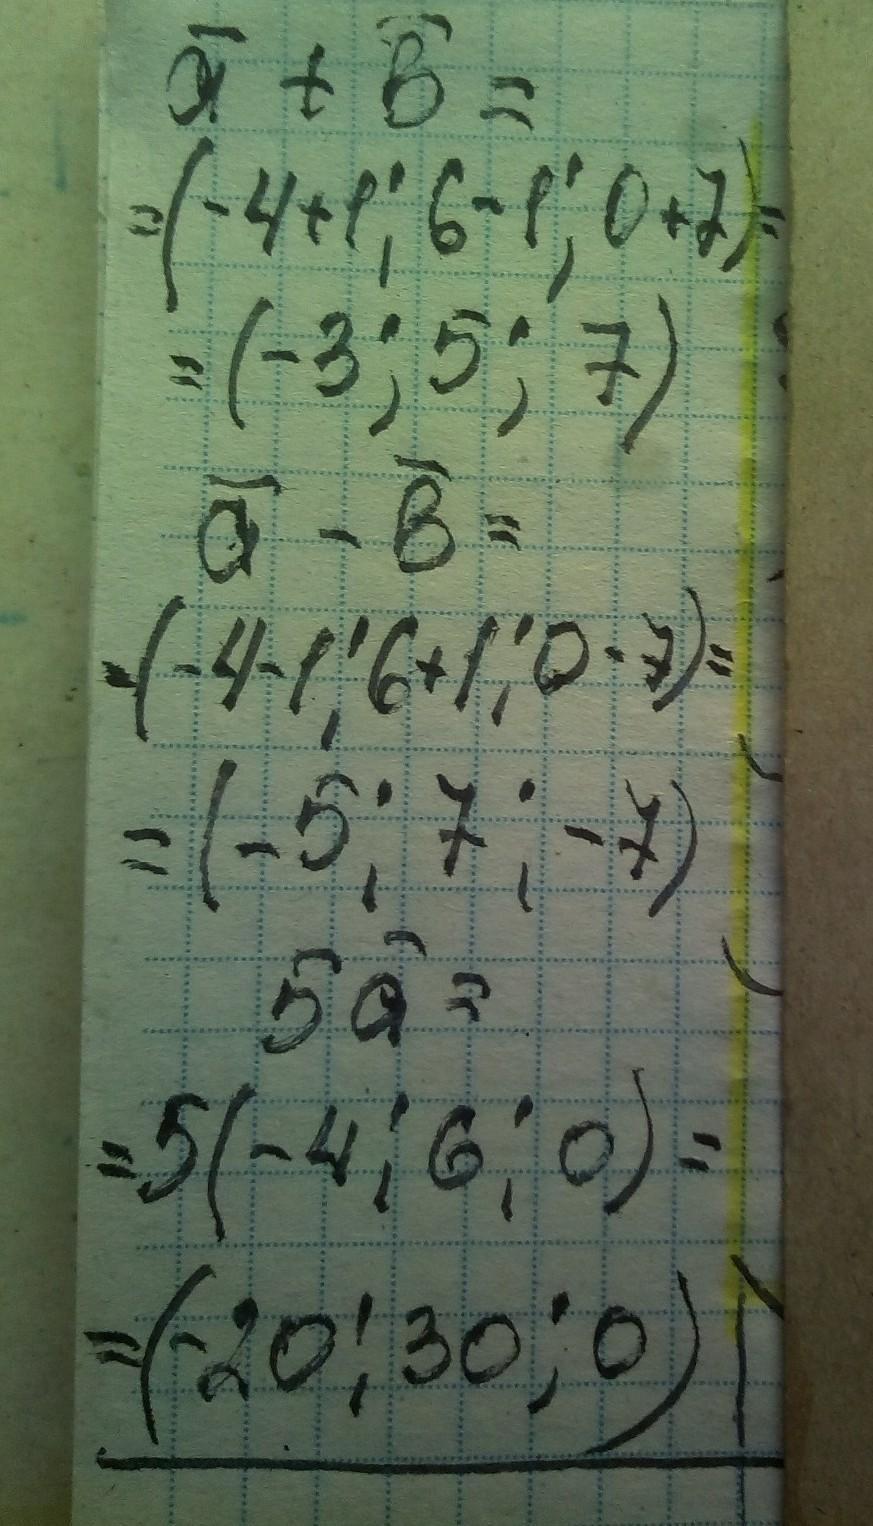 a̅ + b̅ =
=(-4+1; 6-1; 0+7)=
=(-3; 5; 7)
a̅ - b̅ =
=(-4-1; 6+1; 0-7)=
=(-5; 7; -7)
5a̅ =
=5(-4; 6; 0)=
=(-20; 30; 0)